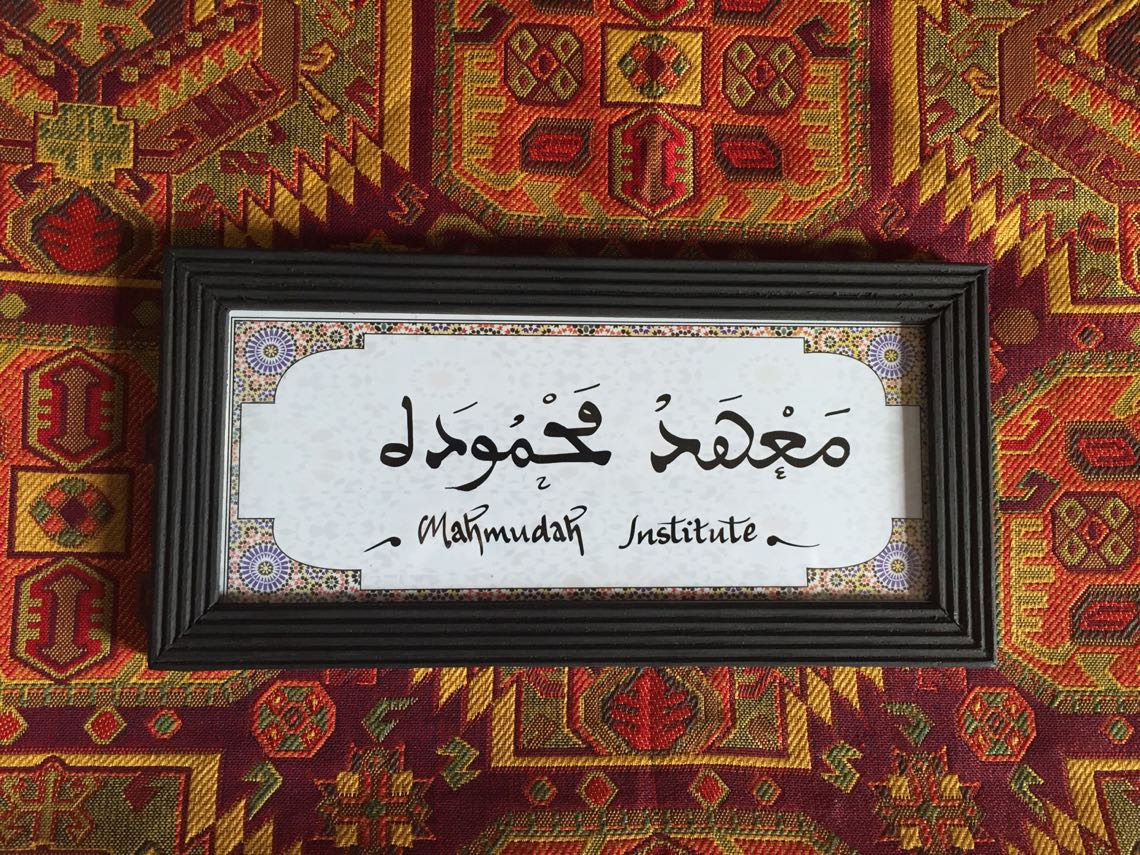 مَعْهَدْ مَحْمُودَه
Mahmudah Institute